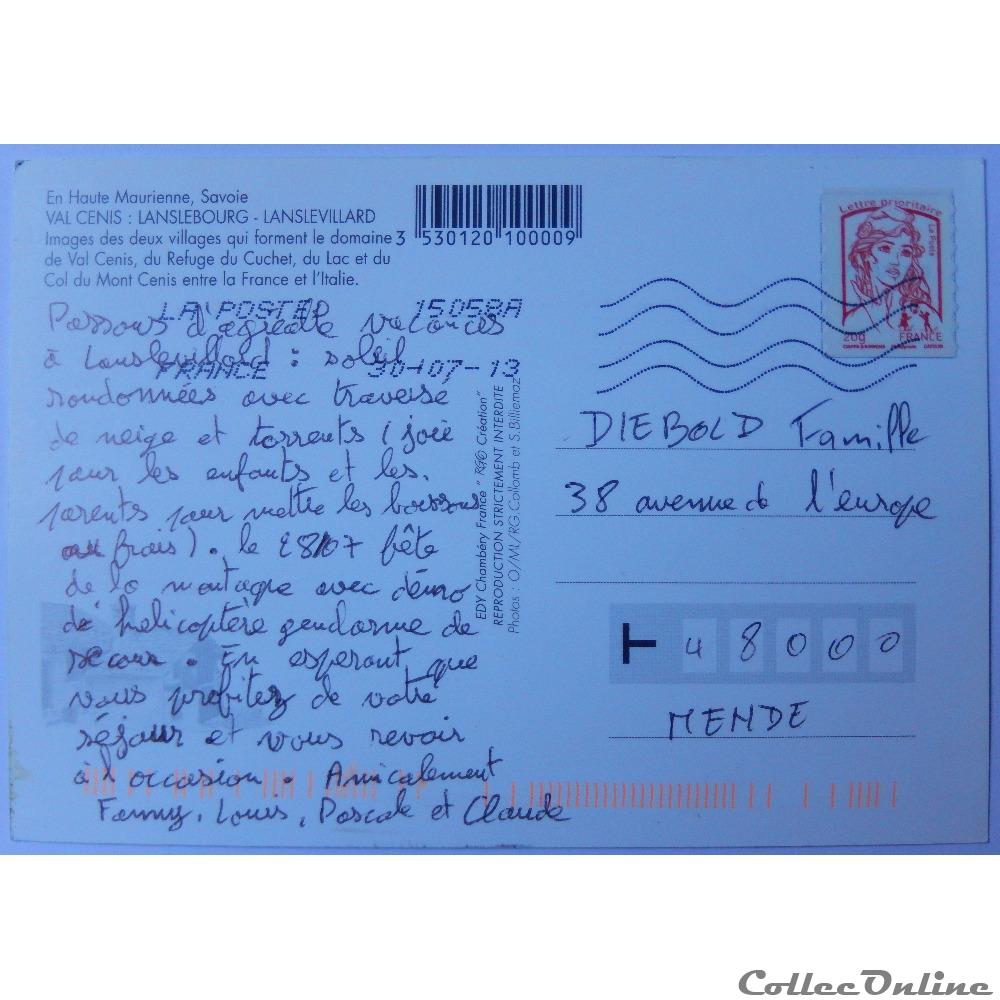 En Haute Maurienne, Savoie
VAL CENIS : LANSLEBOURG - LANSLEVILLARD
Images des deux villages qui forment le domaine
de Val Cenis, du Refuge du Cuchet, du Lac et du
Col du Mont Cenis entre la France et l'Italie.
3 530120 100009
Lettre prioritaire
La Poste
20g FRANCE
LA POSTE 15058A
FRANCE 30-07-13
Passons d'agréable vacances
à Lanslevillard : soleil
randonnées avec traverse
de neige et torrents (joie
pour les enfants et les
parents pour mettre les boissons
au frais). le 28/07 fête
de la montagne avec démo
de hélicoptère gendarme de
secour. En esperant que
vous profitez de votre
séjour et vous revoir
à l'occasion. Amicalement
Fanny, Louis, Pascale et Claude
EDY Chambéry France " RGC Création"
REPRODUCTION STRICTEMENT INTERDITE
Photos : O/ML/RG.Collomb et S.Billiemaz
DIEBOLD Famille
38 avenue de l'europe
T 48000
MENDE
CollecOnline